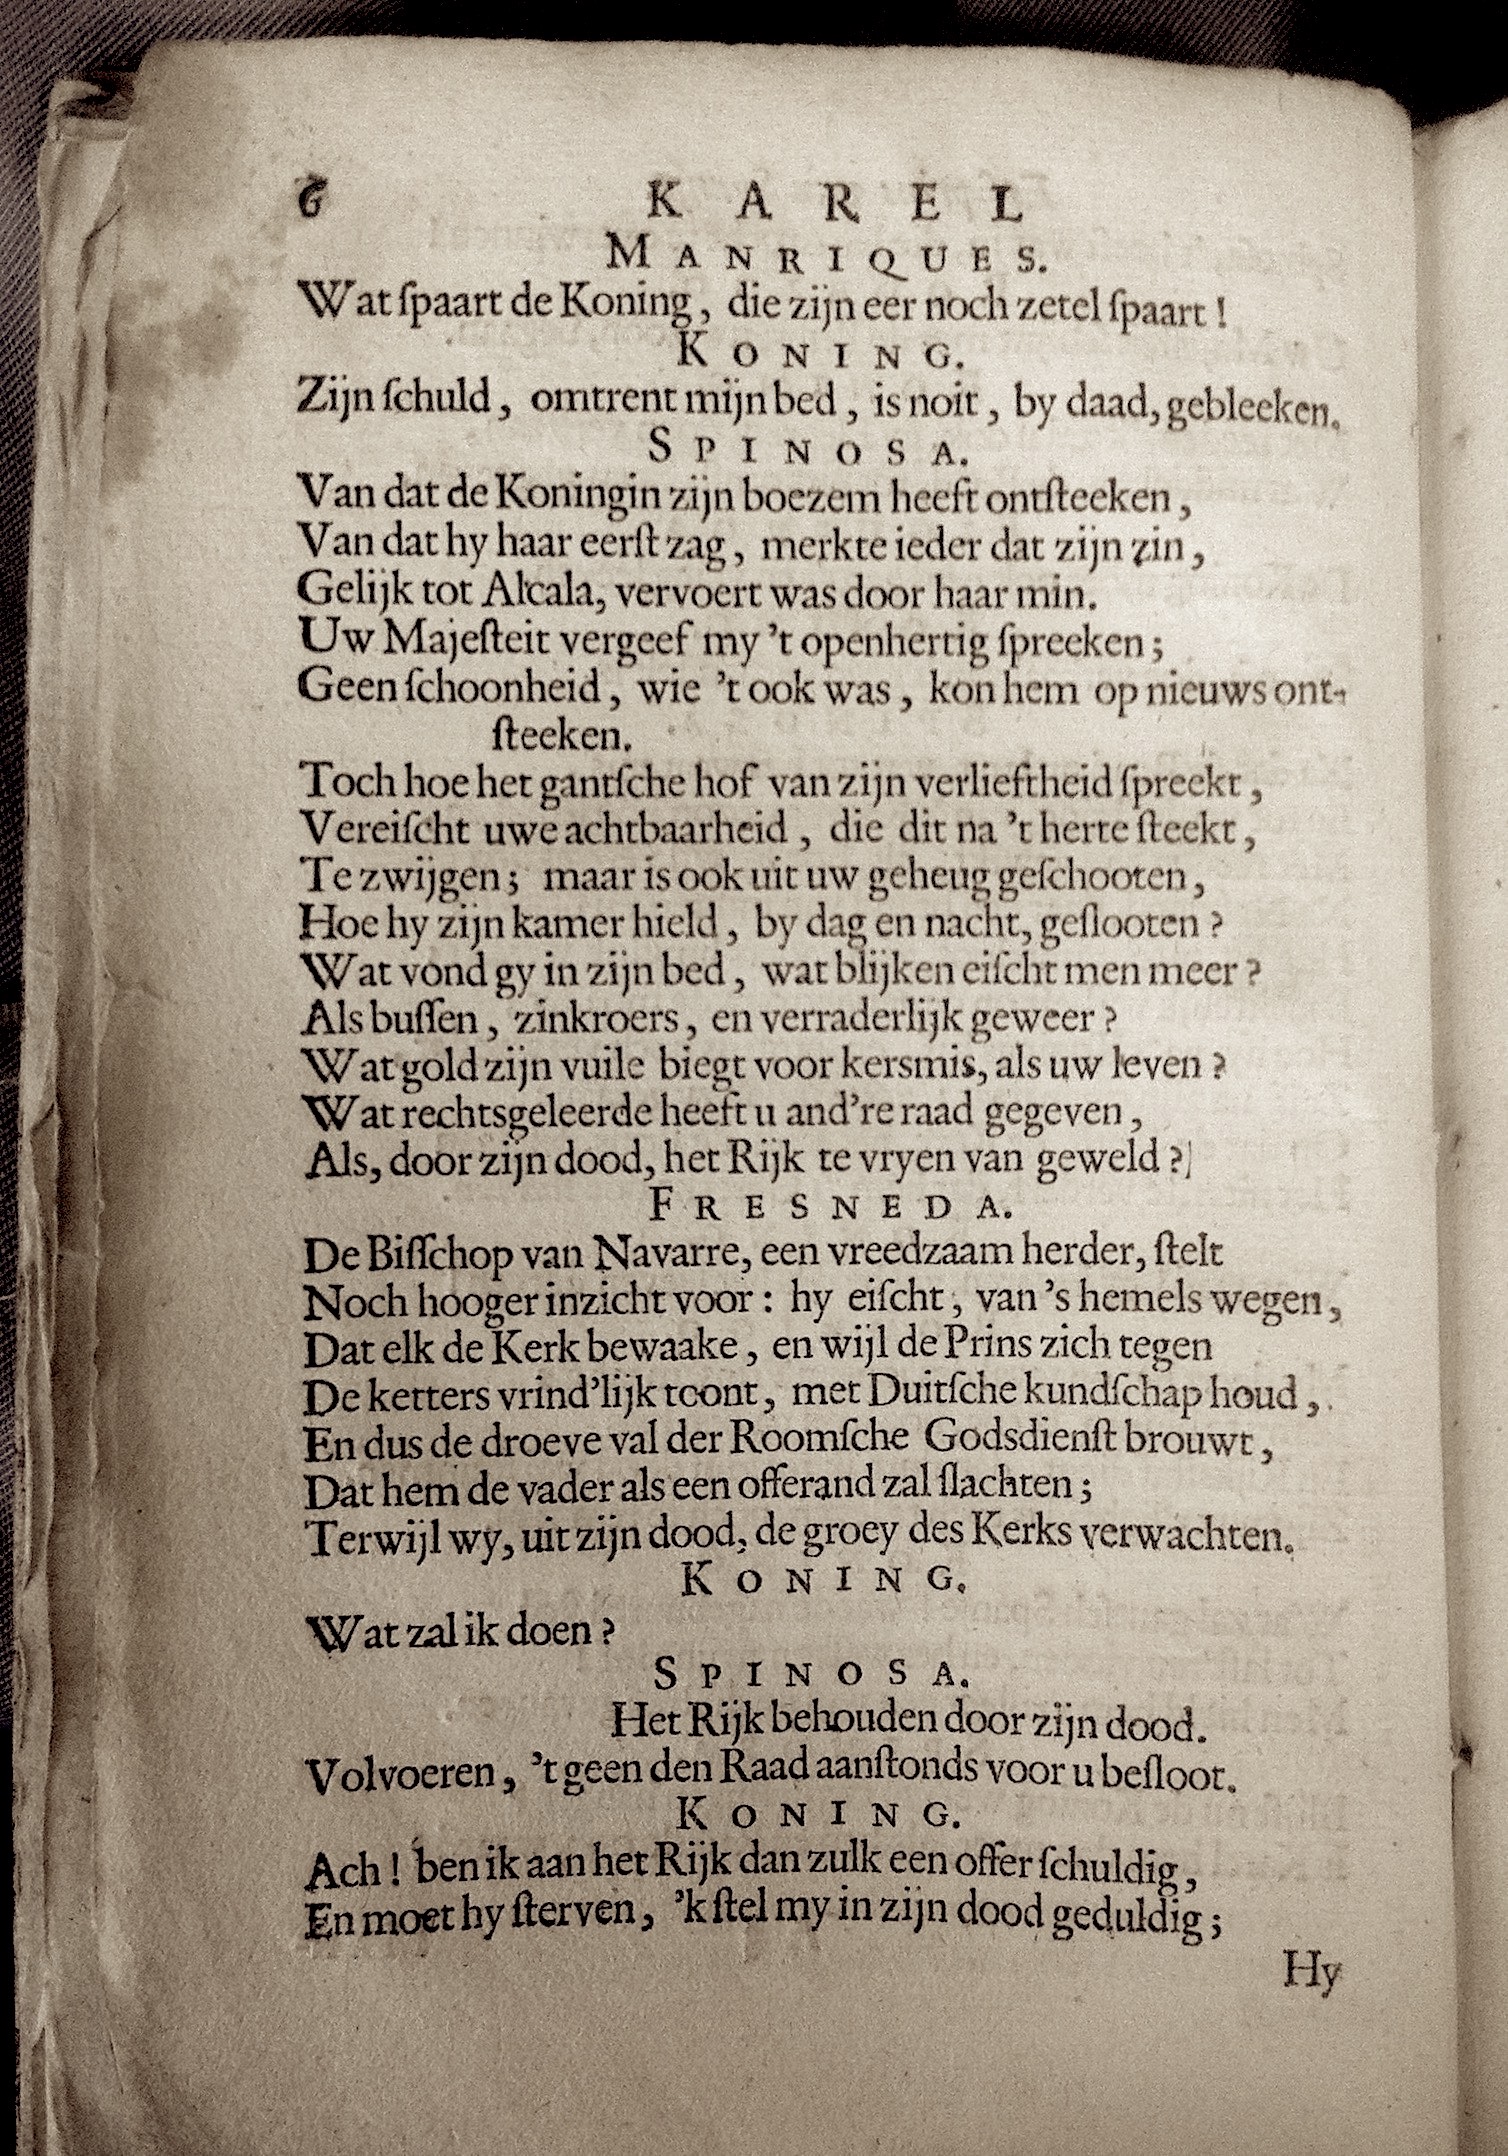 6 KAREL
MANRIQUES.
Wat ſpaart de Koning, die zijn eer noch zetel ſpaart!
KONING.
Zijn ſchuld, omtrent mijn bed, is noit, by daad, gebleeken.
SPINOSA.
Van dat de Koningin zijn boezem heeft ontſteeken,
Van dat hy haar eerſt zag, merkte ieder dat zijn zin,
Gelijk tot Alcala, vervoert was door haar min.
Uw Majeſteit vergeef my 't openhertig ſpreeken;
Geen ſchoonheid, wie 't ook was, kon hem op nieuws ont-
ſteeken.
Toch hoe het gantſche hof van zijn verlieftheid ſpreekt,
Vereiſcht uwe achtbaarheid, die dit na 't herte ſteekt,
Te zwijgen; maar is ook uit uw geheug geſchooten,
Hoe hy zijn kamer hield, by dag en nacht, geſlooten?
Wat vond gy in zijn bed, wat blijken eiſcht men meer?
Als buſſen, zinkroers, en verraderlijk geweer?
Wat gold zijn vuile biegt voor kersmis, als uw leven?
Wat rechtsgeleerde heeft u and're raad gegeven,
Als, door zijn dood, het Rijk te vryen van geweld?
FRESNEDA.
De Biſſchop van Navarre, een vreedzaam herder, ſtelt
Noch hooger inzicht voor: hy eiſcht, van 's hemels wegen,
Dat elk de Kerk bewaake, en wijl de Prins zich tegen
De ketters vrind'lijk toont, met Duitſche kundſchap houd,
En dus de droeve val der Roomſche Godsdienſt brouwt,
Dat hem de vader als een offerand zal ſlachten;
Terwijl wy, uit zijn dood, de groey des Kerks verwachten.
KONING.
Wat zal ik doen?
SPINOSA.
Het Rijk behouden door zijn dood.
Volvoeren, 't geen den Raad aanſtonds voor u beſloot.
KONING.
Ach! ben ik aan het Rijk dan zulk een offer ſchuldig,
En moet hy ſterven, 'k ſtel my in zijn dood geduldig;
Hy